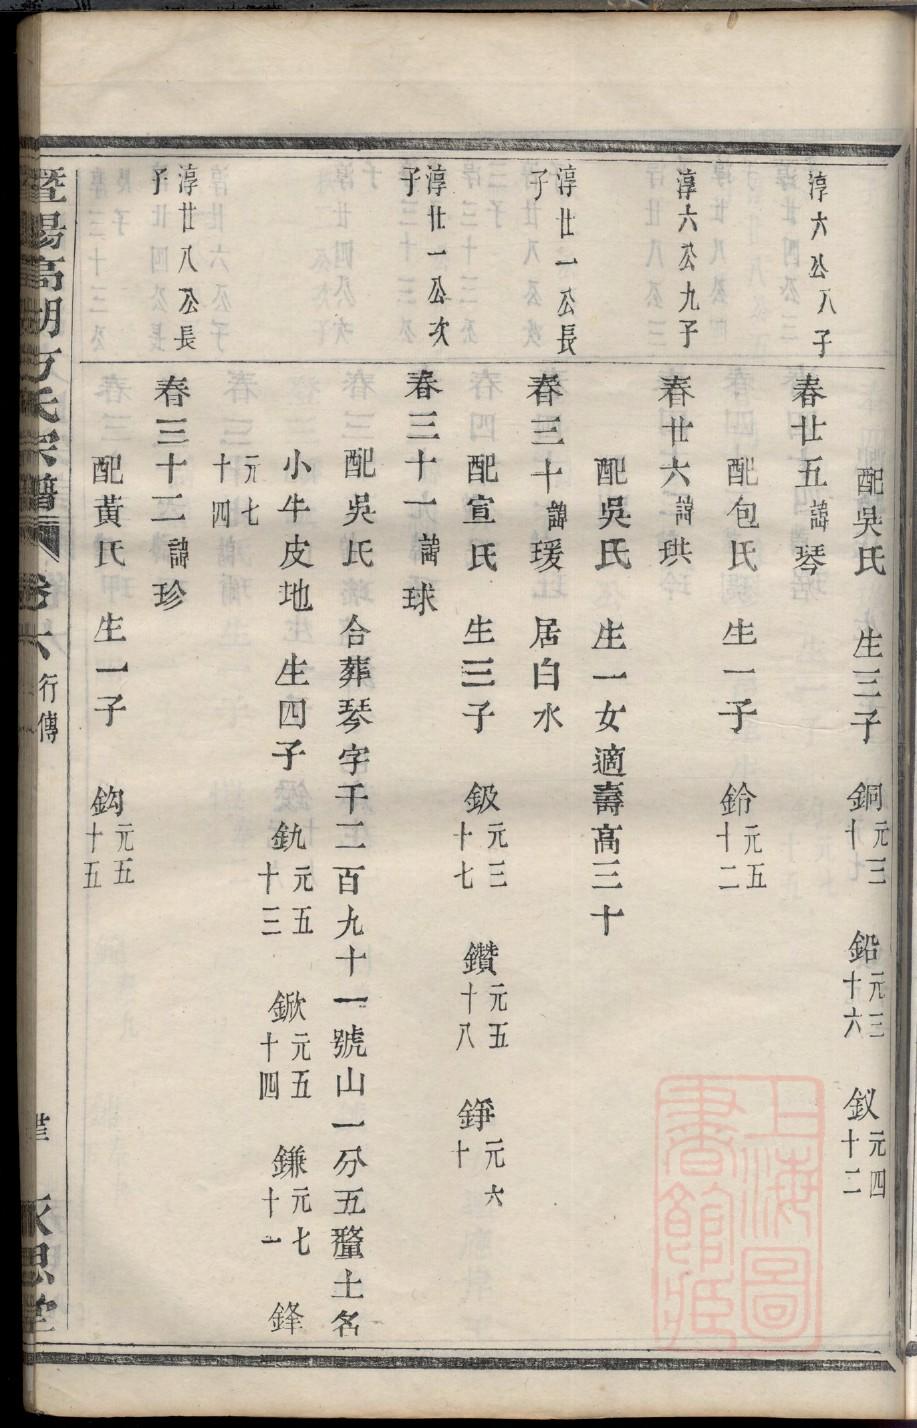 配吳氏 生三子 銅元三十 鉛元三十六 釵元四十二
淳六公八子
春廿五諱琴
配包氏 生一子 鈴元五十二
淳六公九子
春廿六諱珙
配吳氏 生一女適壽高三十
淳廿一公長子
春三十諱瑗 居白水
配宣氏 生三子 鈒元三十七 鑽元五十八 錚元六十
淳廿一公次子
春三十一諱球
配吳氏 合葬琴字千二百九十一號山一分五釐土名
小牛皮地 生四子 釚元五十三 鍁元五十四 鎌元七十一 鋒
元七十四
淳廿八公長子
春三十二諱珍
配黃氏 生一子 鈎元五十五
暨陽高湖方氏宗譜 卷六 行傳
永思堂
上海圖書館藏